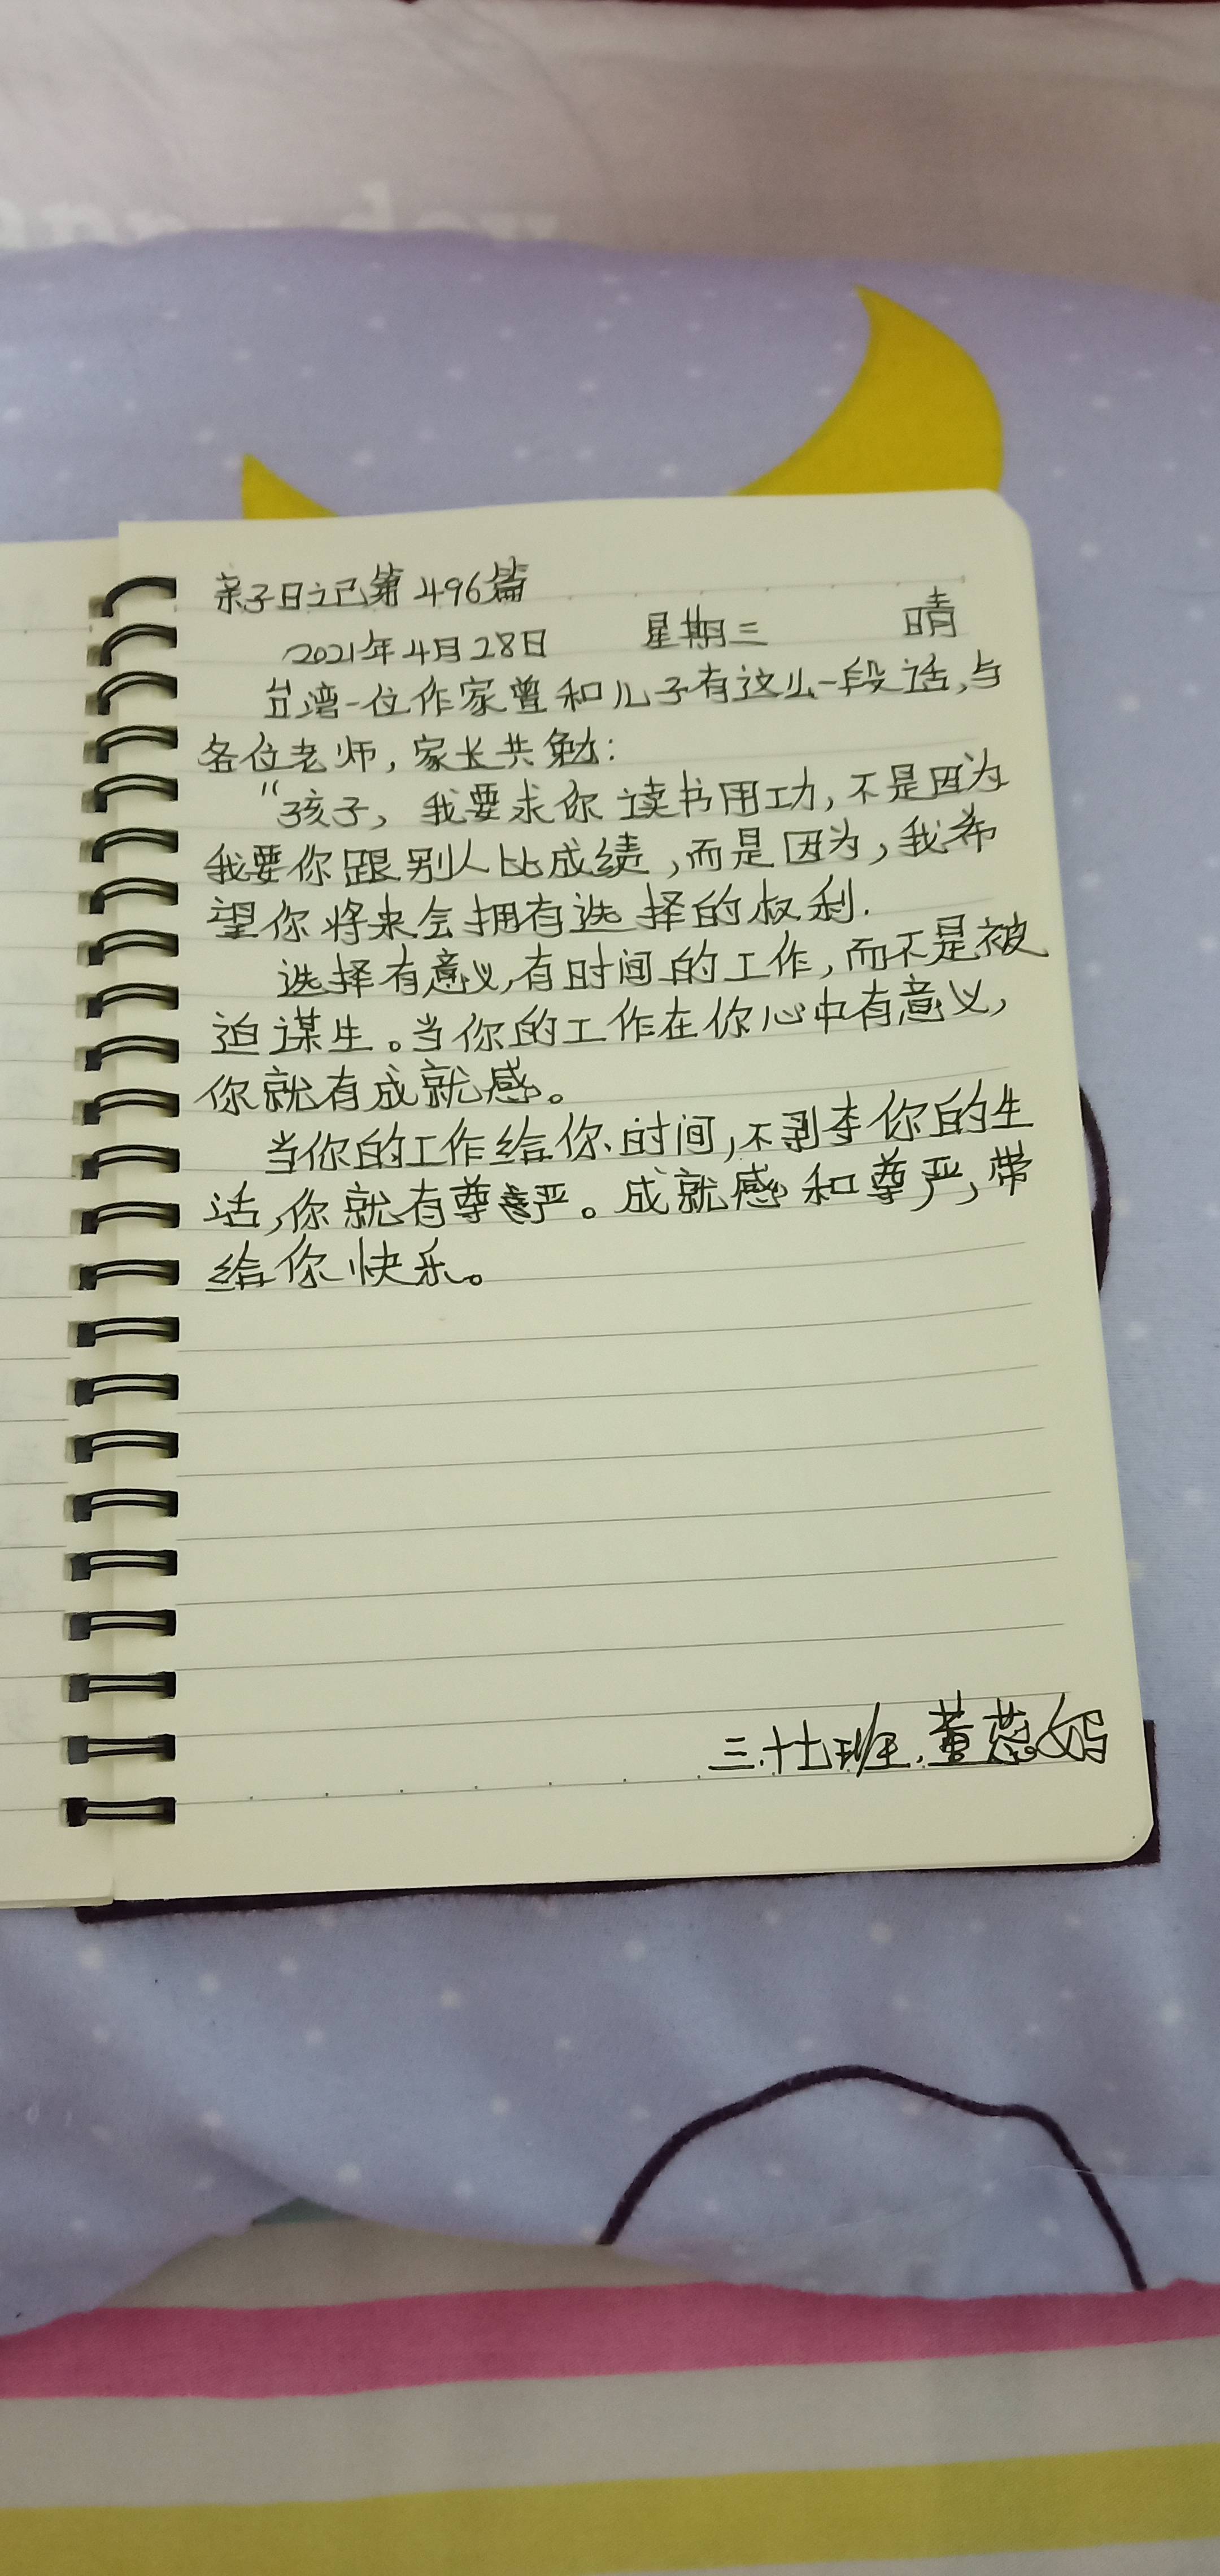 亲子日记第496篇
2021年4月28日 星期三 晴
台湾一位作家曾和儿子有这么一段话,与
各位老师,家长共勉:
“孩子,我要求你读书用功,不是因为
我要你跟别人比成绩,而是因为,我希
望你将来会拥有选择的权利.
选择有意义,有时间的工作,而不是被
迫谋生。当你的工作在你心中有意义,
你就有成就感。
当你的工作给你时间,不剥夺你的生
活,你就有尊严。成就感和尊严,带
给你快乐。
三.十七班.董蕊妈